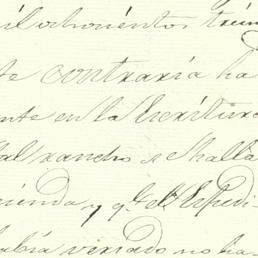 il ochocientos trein
te contraria ha
ente en la Escritura
tal rancho se halla
ienda, y qe. el Espedi-
había variado no ha-